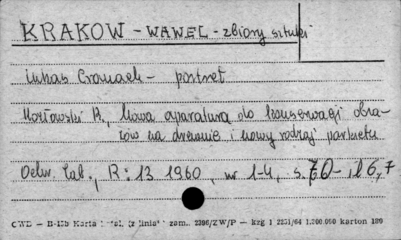 KRAKÓW - WAWEL - zbiory sztuki
Lukas Cranach - portret
Kozłowski R., Nowa aparatura do konserwacji obra-
zów na drewnie i nowy rodzaj parkietu
Ochr. Zab., R: 13 1960, nr 1-4, s. 70 - il 6, 7
CWD — B-13b Karta zam. 2396/ZW/P — krg 1 2251/64 1.200.000 karton 180